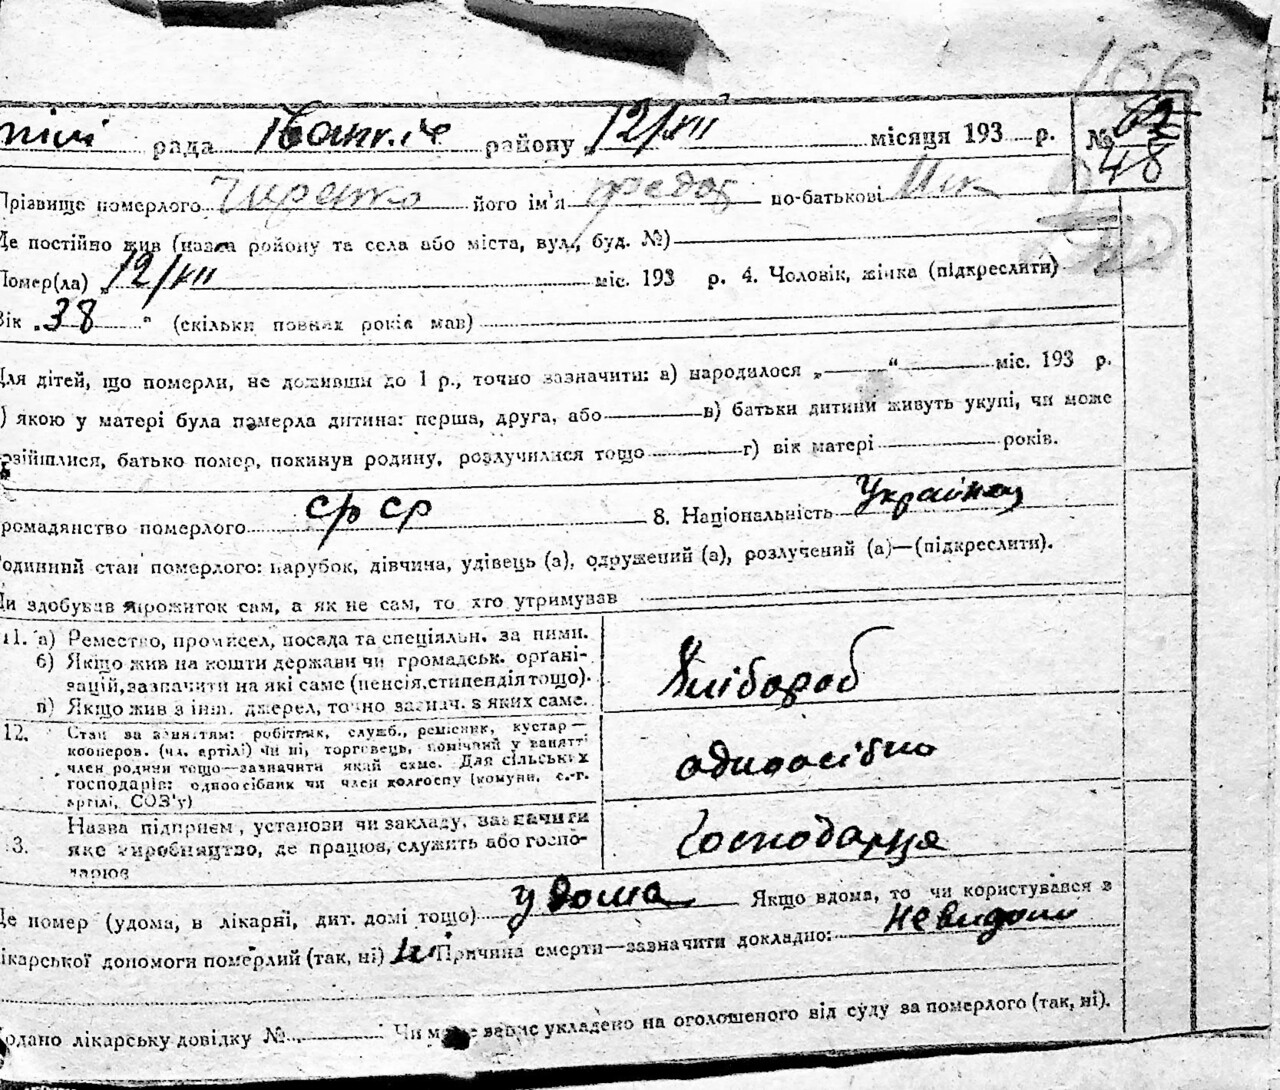 166
рада Іванк.іч району 12/VII місяця 193 р. № 62
48
Прізвище померлого Чиренко його ім'я Федот по-батькові Мик
Де постійно жив (назва ройону та села або міста, вул., буд. №)
Помер(ла) „ 12/VII міс. 193 р. 4. Чоловік, жінка (підкреслити)
Вік „38 " (скільки повних років мав)
Для дітей, що померли, не доживши до 1 р., точно зазначити: а) народилося „ " міс. 193 р.
) якою у матері була померла дитина: перша, друга, або в) батьки дитини живуть укупі, чи може
озійшлися, батько помер, покинув родину, розлучилися тощо г) вік матері років.
ромадянство померлого СРСР 8. Національність Українец
одинний стан померлого: парубок, дівчина, удівець (а), одружений (а), розлучений (а)—(підкреслити).
Чи здобував прожиток сам, а як не сам, то хто утримував
11. а) Ремество, промисел, посада та спеціяльн. за ними.
б) Якщо жив на кошти держави чи громадськ. органі-
зацій, зазначити на які саме (пенсія, стипендія тощо).
в) Якщо жив з інш. джерел, точно зазнач. з яких саме.
Хлібороб
12. Стан за заняттям: робітник, служб., ремісник, кустар—
кооперов. (чл. артілі) чи ні, торговець, помічний у занятті
член родини тощо—зазначити який саме. Для сільських
господарів: одноосібник чи член колгоспу (комуни, с.-г.
артілі, СОЗ'у)
одноосібно
13. Назва підприєм., установи чи закладу, зазначити
яке виробництво, де працюв, служить або госпо-
дарюв
Господарця
Де помер (удома, в лікарні, дит. домі тощо) у дома Якщо вдома, то чи користувався з
лікарської допомоги померлий (так, ні) ні Причина смерти—зазначити докладно: невидомо
Додано лікарську довідку № Чи може запис укладено на оголошеного від суду за померлого (так, ні).